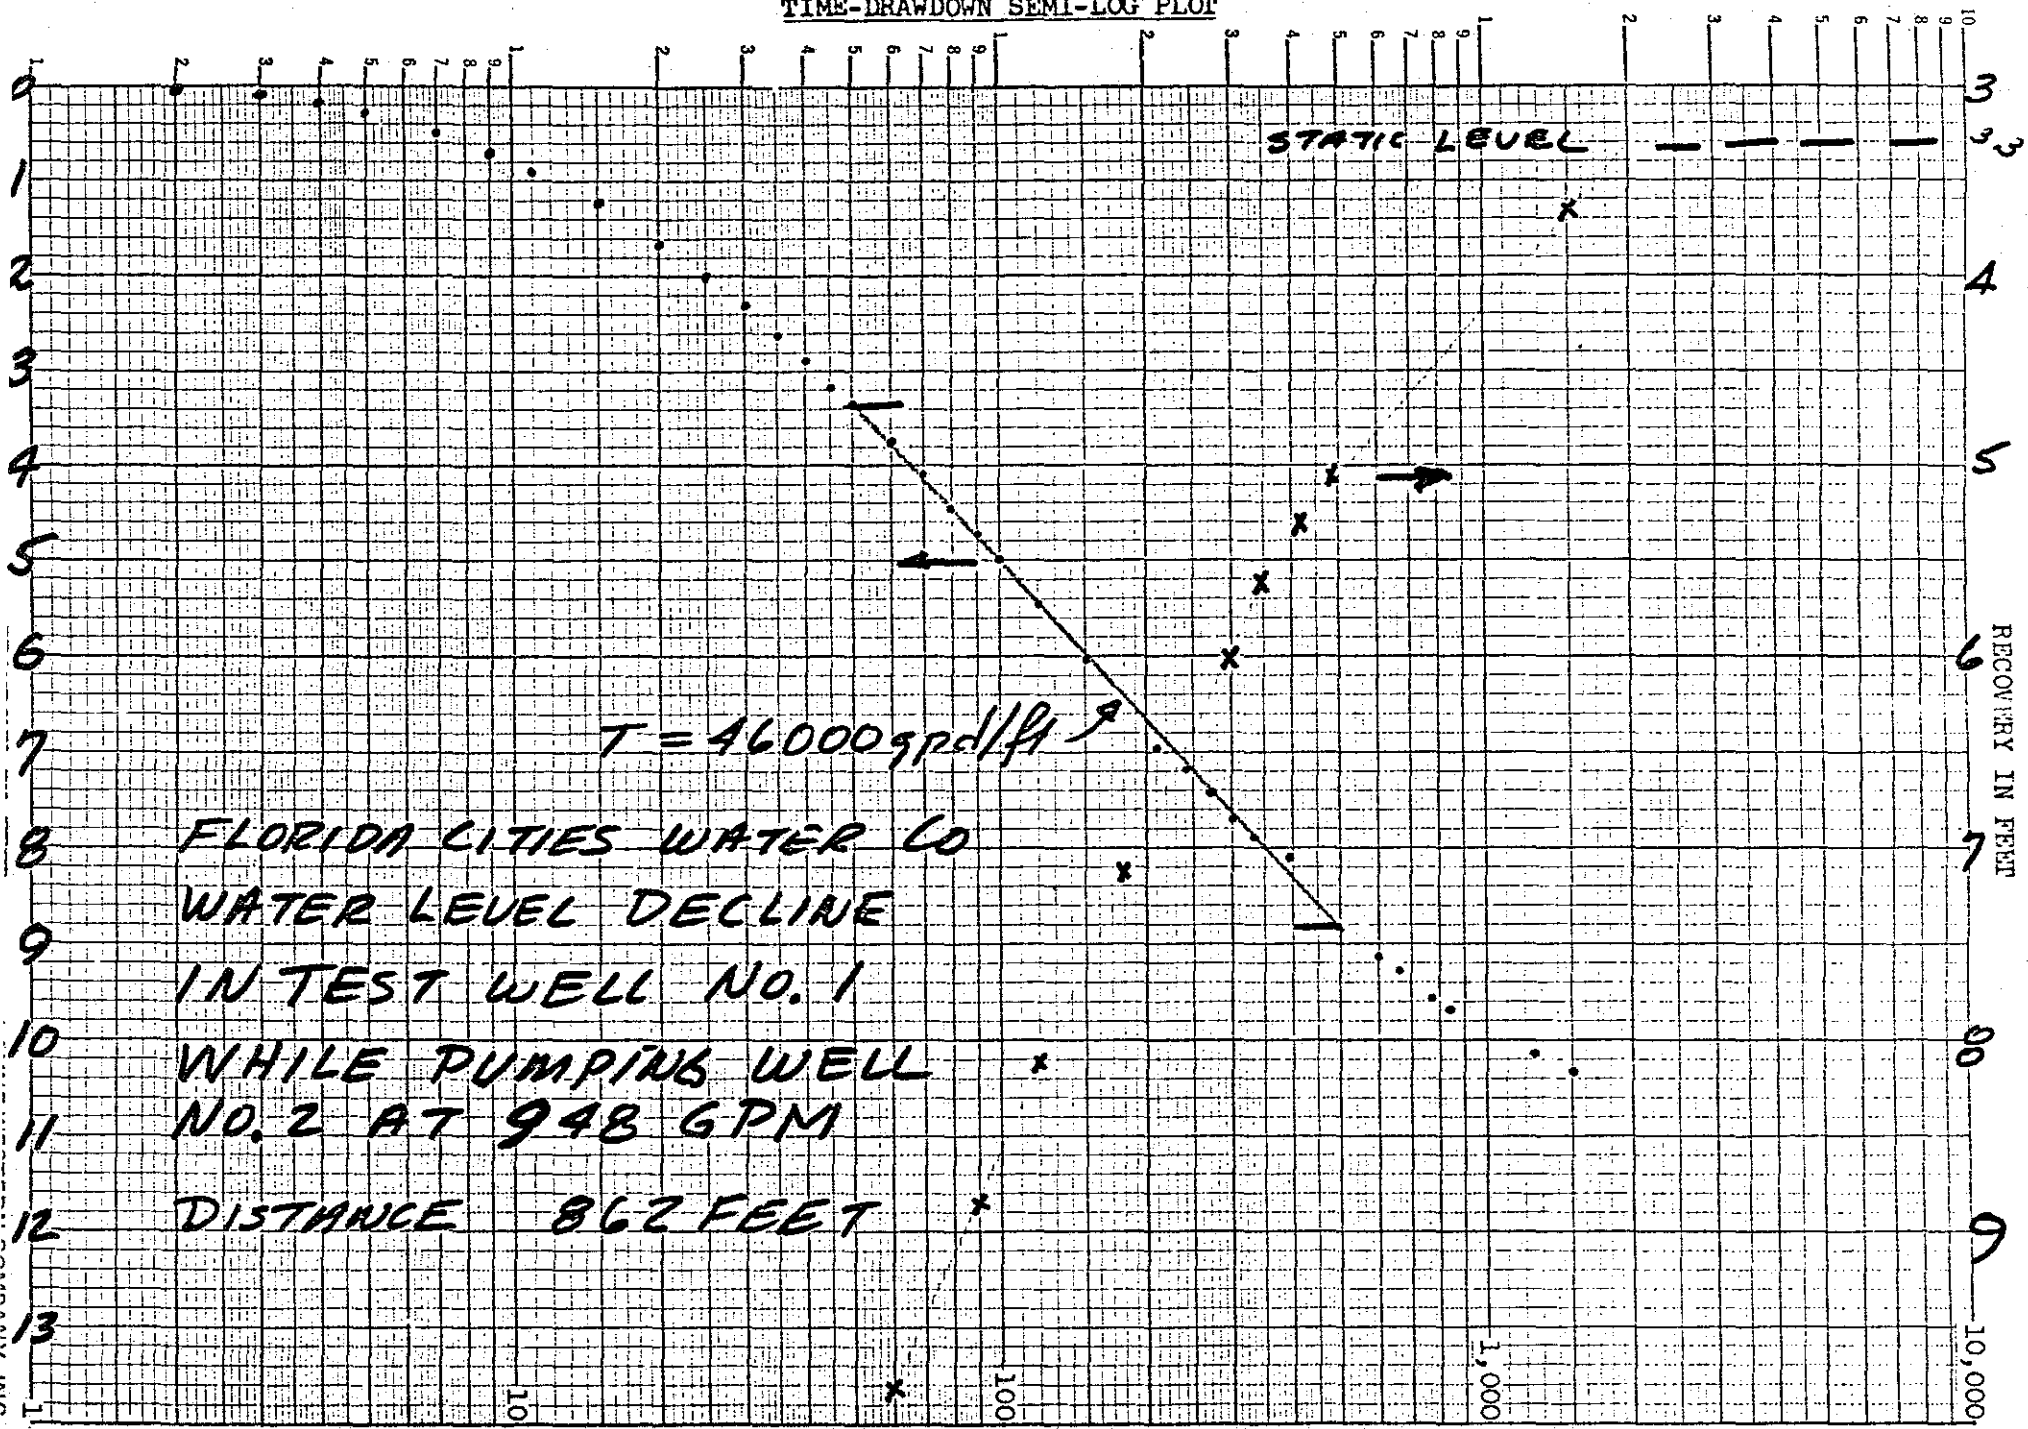 TIME-DRAWDOWN SEMI-LOG PLOT
1 2 3 4 5 6 7 8 9 1 2 3 4 5 6 7 8 9 1 2 3 4 5 6 7 8 9 1 2 3 4 5 6 7 8 9 10
0
1
2
3
4
5
6
7
8
9
10
11
12
13
STATIC LEVEL
T = 46000 gpd/ft
FLORIDA CITIES WATER CO
WATER LEVEL DECLINE
IN TEST WELL NO. 1
WHILE PUMPING WELL
NO. 2 AT 948 GPM
DISTANCE 862 FEET
3
3.3
4
5
6
7
8
9
RECOVERY IN FEET
1 10 100 1,000 10,000